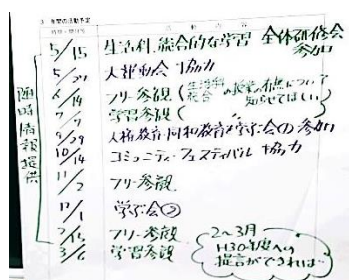 3 年間の活動予定
5/15 生活科、総合的な学習 全体研修会 参加
5/27 人権動会 協力
6/14 フリー参観 (生活科 総合 の授業の有無について 知らせてほしい)
7/7 学習参観 (
9/29 人権教育・同和教育を学ぶ会の参加
10/14 コミュニティ・フェスティバル 協力
11/2 フリー参観
12/1 学ぶ会②
2/15 フリー参観
3/6 学習参観
随時情報提供
2〜3月
H30年度への
提言ができれば